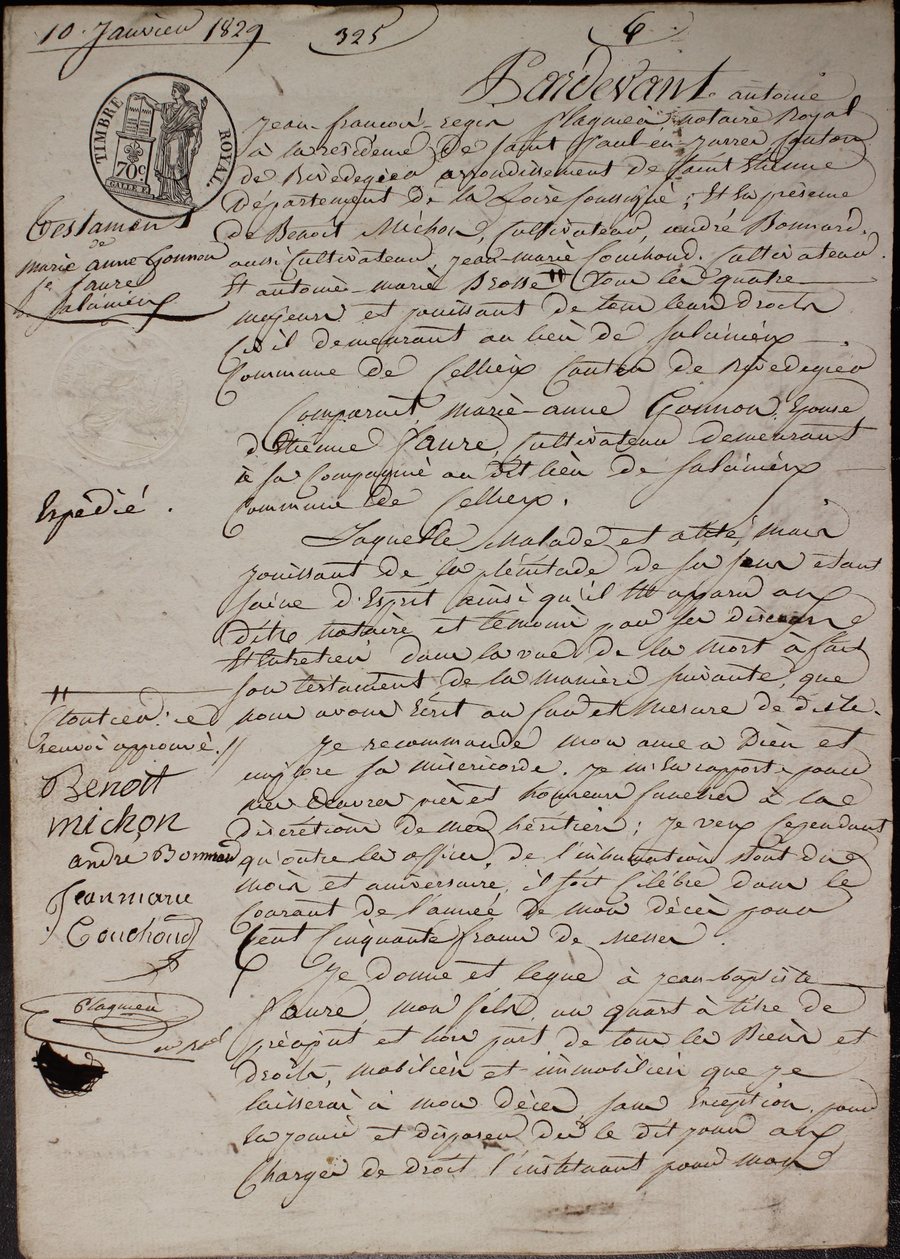 10. Janvier 1829
325
6
TIMBRE ROYAL.
70c.
Testament
de
marie anne Gonnon
fe faure
Salamieux
Expédié.
Pardevant antoine
Jean-francois-regis Plagneux notaire Royal
à la résidence de Saint Paul-en-Jarret Canton
de Rivedegier arrondissement de Saint Etienne
Département de la Loire soussigné; Et En présence
de Benoit Michon, Cultivateur, andré Bonnard,
aussi Cultivateur, jean-marie Couchoud. Cultivateur.
Et antoine-marie Brosse // Tous les quatre
majeurs et jouissant de tous leurs droits
Civils demeurant au lieu de
Commune de Cellieux Canton de Rivedegier
Comparait, marie-anne Gonnon. Epouse
d'Etienne faure, Cultivateur demeurant
à sa Compagnie au dit lieu de
Commune de Cellieux.
Laquelle Malade et alité, mais
jouissant de la plénitude de ses sens étant
saine d'Esprit ainsi qu'il apparu aux
dits notaire et témoins par ses discours
Et Entretien dans la vue de la mort à fait
son testament de la manière suivante, que
nous avons Ecrit au fur et Mesure de dicté.
Je recommande mon ame a Dieu et
sa miséricorde. Je m'En rapporte pour
mes Oeuvres pies et honneurs funebres à la
discrétion de mes héritiers; Je veux Cependant
qu'outre les offices, de l'inhumation bout du
mois et aniversaire, il soit Célébré dans le
Courant de l'année de mon décès pour
Cent Cinquante francs de Messes.
Je donne et legue à jean-baptiste
faure mon fils, un quart à titre de
préciput et hors part de tous les Biens et
droits, mobiliers et immobiliers que je
laisserai à mon décès, sans Exception, pour
En jouir et disposer dès le dit jour aux
Charges de droit l'instituant pour mon
//
renvoi approuvé. //
Benoit
michon
andre Bonnard
Jeanmarie
Couchoud
Plagneux